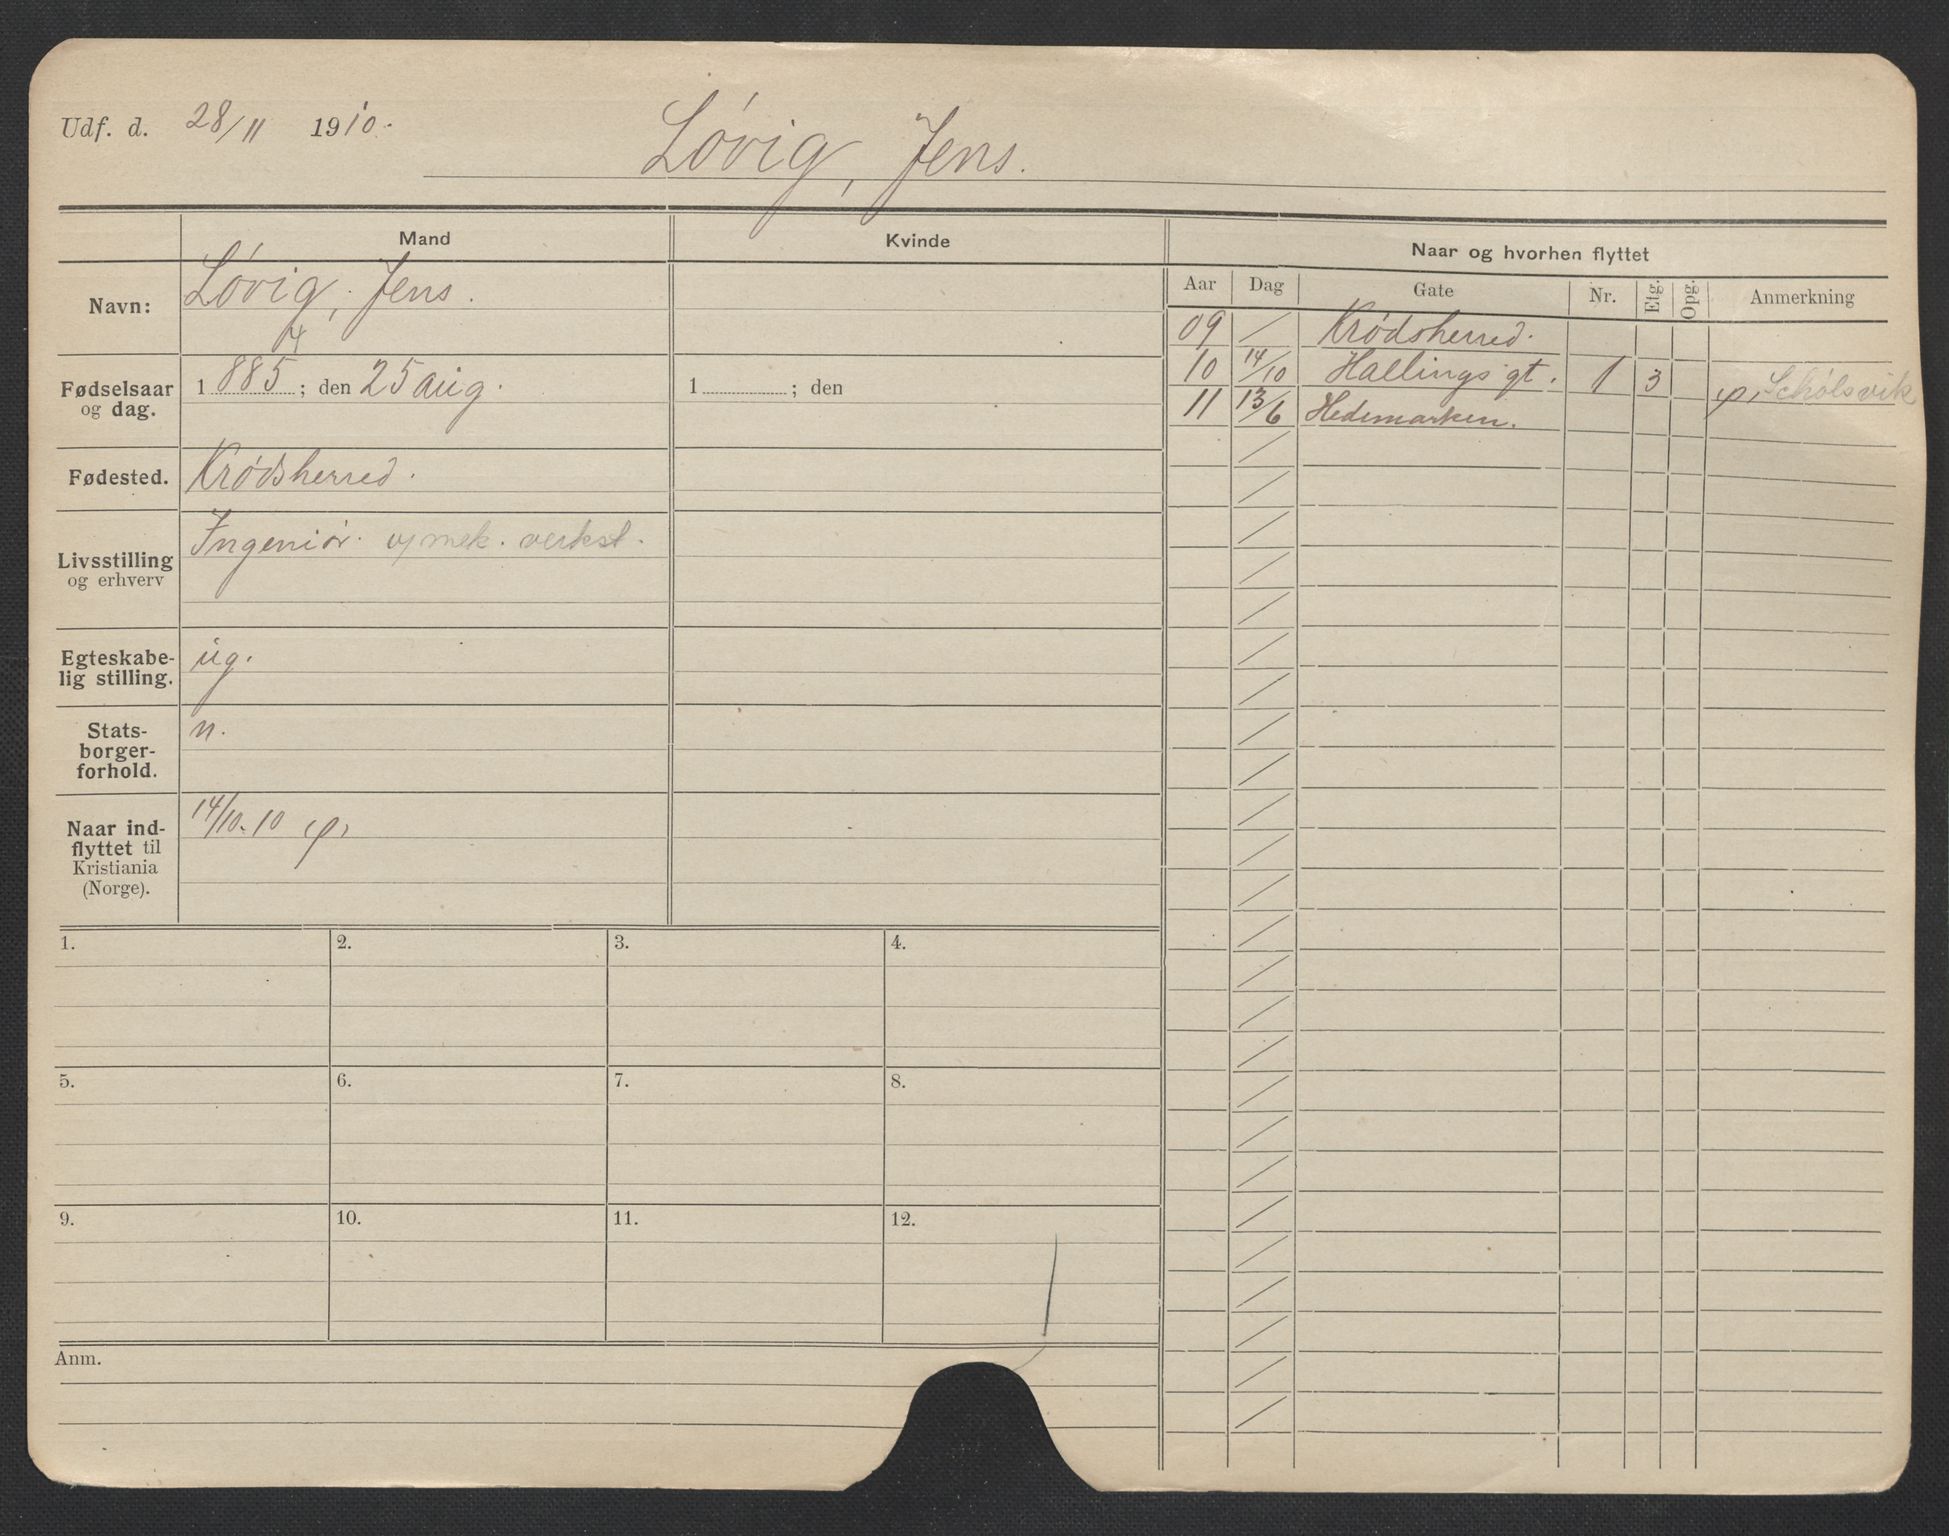 Udf. d. 28/11 1910.
Løvig, Jens.
Mand
Kvinde
Naar og hvorhen flyttet
Aar Dag Gate Nr. Etg. Opg. Anmerkning
Navn: Løvig, Jens.
Fødselsaar og dag. 1885; den 25 aug.
1 ; den
Fødested. Krødsherred.
Livsstilling og erhverv Ingeniør. v/ mek. verkst.
Egteskabe-
lig stilling. ug.
Stats-
borger-
forhold. n.
Naar ind-
flyttet til
Kristiania
(Norge). 14/10.10
09 / Krødsherred.
10 14/10 Hallings gt. 1 3
11 13/6 Hedemarken.
1. 2. 3. 4.
5. 6. 7. 8.
9. 10. 11. 12.
Anm.